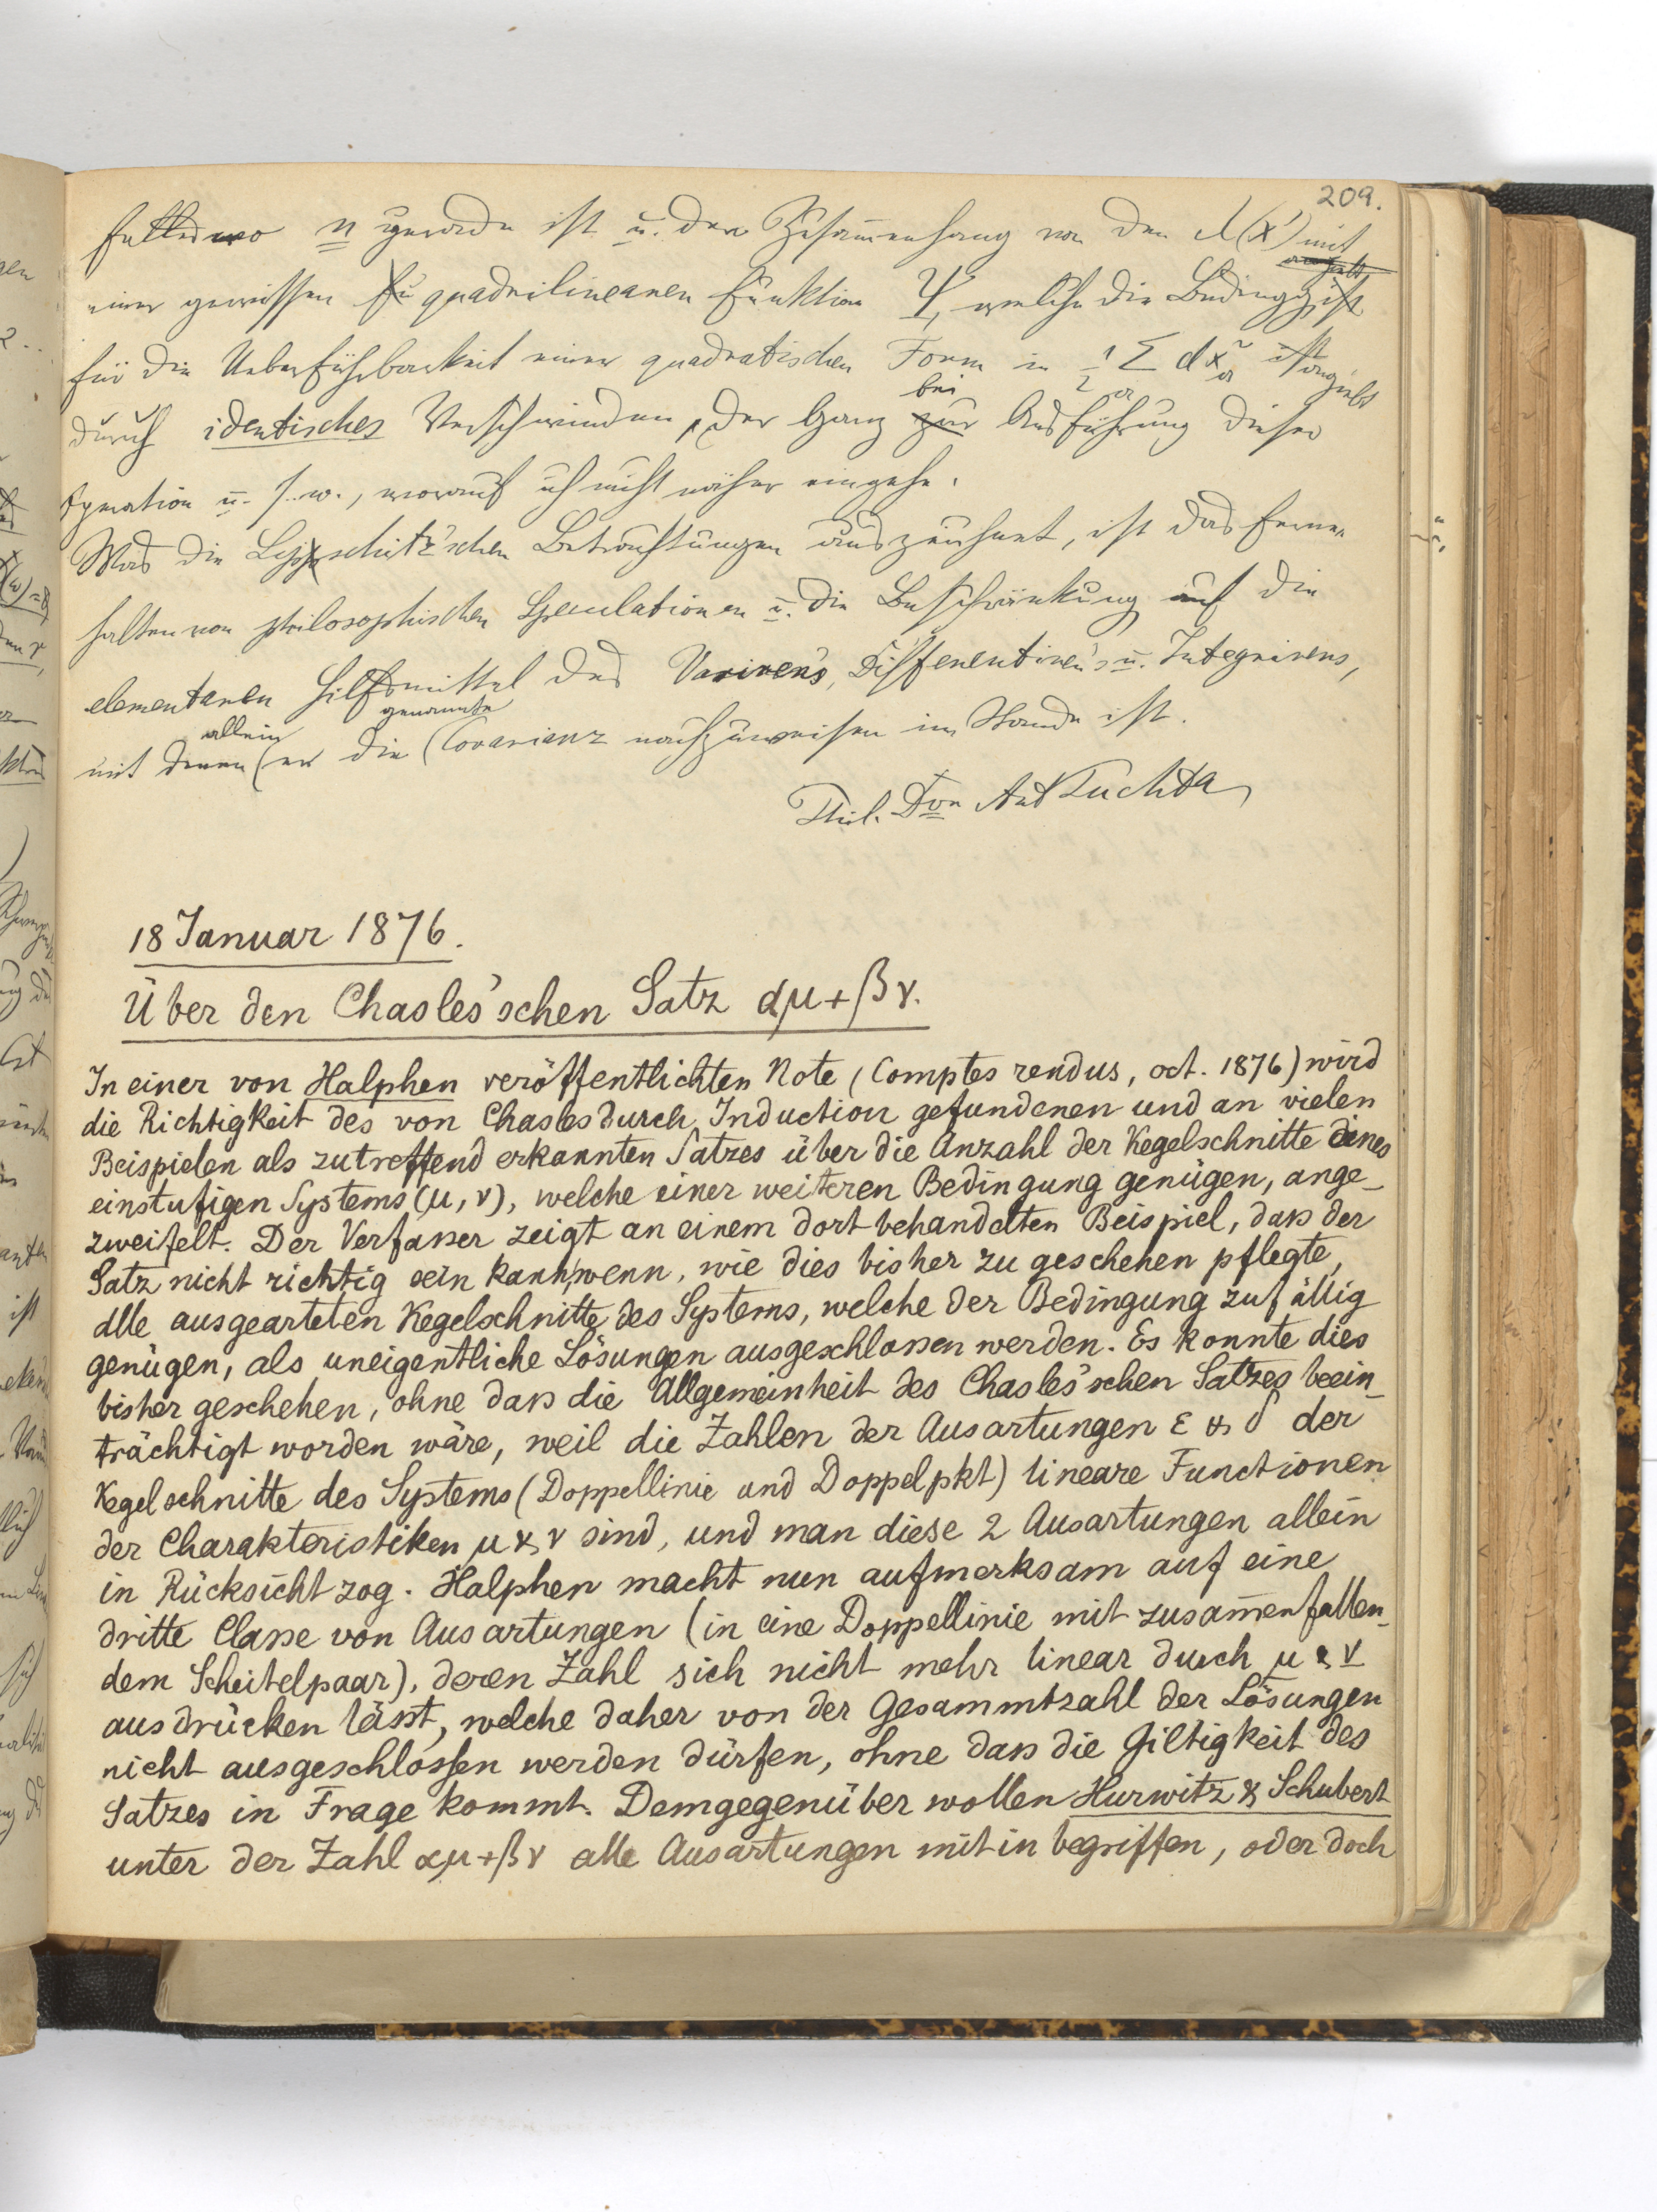 209.
Falles wo n gerade ist u. der Zusam̄enhang von den λ(x) mit
einer gewissen quadrilinearen Funktion Ψ, welche die Bedingg
für die Ueberführbarkeit einer quadratischen Form in ½ Σ dx²ₐ angiebt
durch identisches Verschwinden, der Gang bei Ausführung dieser
Operation u. s. w., worauf ich nicht näher eingehe.
Was die Lipschitz'schen Betrachtungen auszeichnet, ist das Ferne
halten von philosophischen Speculationen u. die Beschränkung auf die
elementaren Hilfsmittel des Variiren's, Differentiiren's u. Integrirens,
mit denen allein er die genannte Covarianz nachzuweisen im Stande ist.
Phil. Dr. Ant Puchta
18 Januar 1876.
Über den Chasles'schen Satz αμ+βν.
In einer von Halphen veröffentlichten Note (Comptes rendus, oct. 1876) wird
die Richtigkeit des von Chasles durch Induction gefundenen und an vielen
Beispielen als zutreffend erkannten Satzes über die Anzahl der Kegelschnitte eines
einstufigen Systems (μ, ν), welche einer weiteren Bedingung genügen, ange-
zweifelt. Der Verfasser zeigt an einem dort behandelten Beispiel, dass der
Satz nicht richtig sein kann, wenn, wie dies bisher zu geschehen pflegte,
alle ausgearteten Kegelschnitte des Systems, welche der Bedingung zufällig
genügen, als uneigentliche Lösungen ausgeschlossen werden. Es konnte dies
bisher geschehen, ohne dass die Allgemeinheit des Chasles'schen Satzes beein-
trächtigt worden wäre, weil die Zahlen der Ausartungen ε & δ der
Kegelschnitte des Systems (Doppellinie und Doppelpkt) lineare Functionen
der Charakteristiken μ & ν sind, und man diese 2 Ausartungen allein
in Rücksicht zog. Halphen macht nun aufmerksam auf eine
dritte Classe von Ausartungen (in eine Doppellinie mit zusam̄enfallen-
dem Scheitelpaar), deren Zahl sich nicht mehr linear durch μ & ν
ausdrücken lässt, welche daher von der Gesammtzahl der Lösungen
nicht ausgeschlossen werden dürfen, ohne dass die Giltigkeit des
Satzes in Frage kommt. Demgegenüber wollen Hurwitz & Schubert
unter der Zahl αμ+βν alle Ausartungen mit in begriffen, oder doch